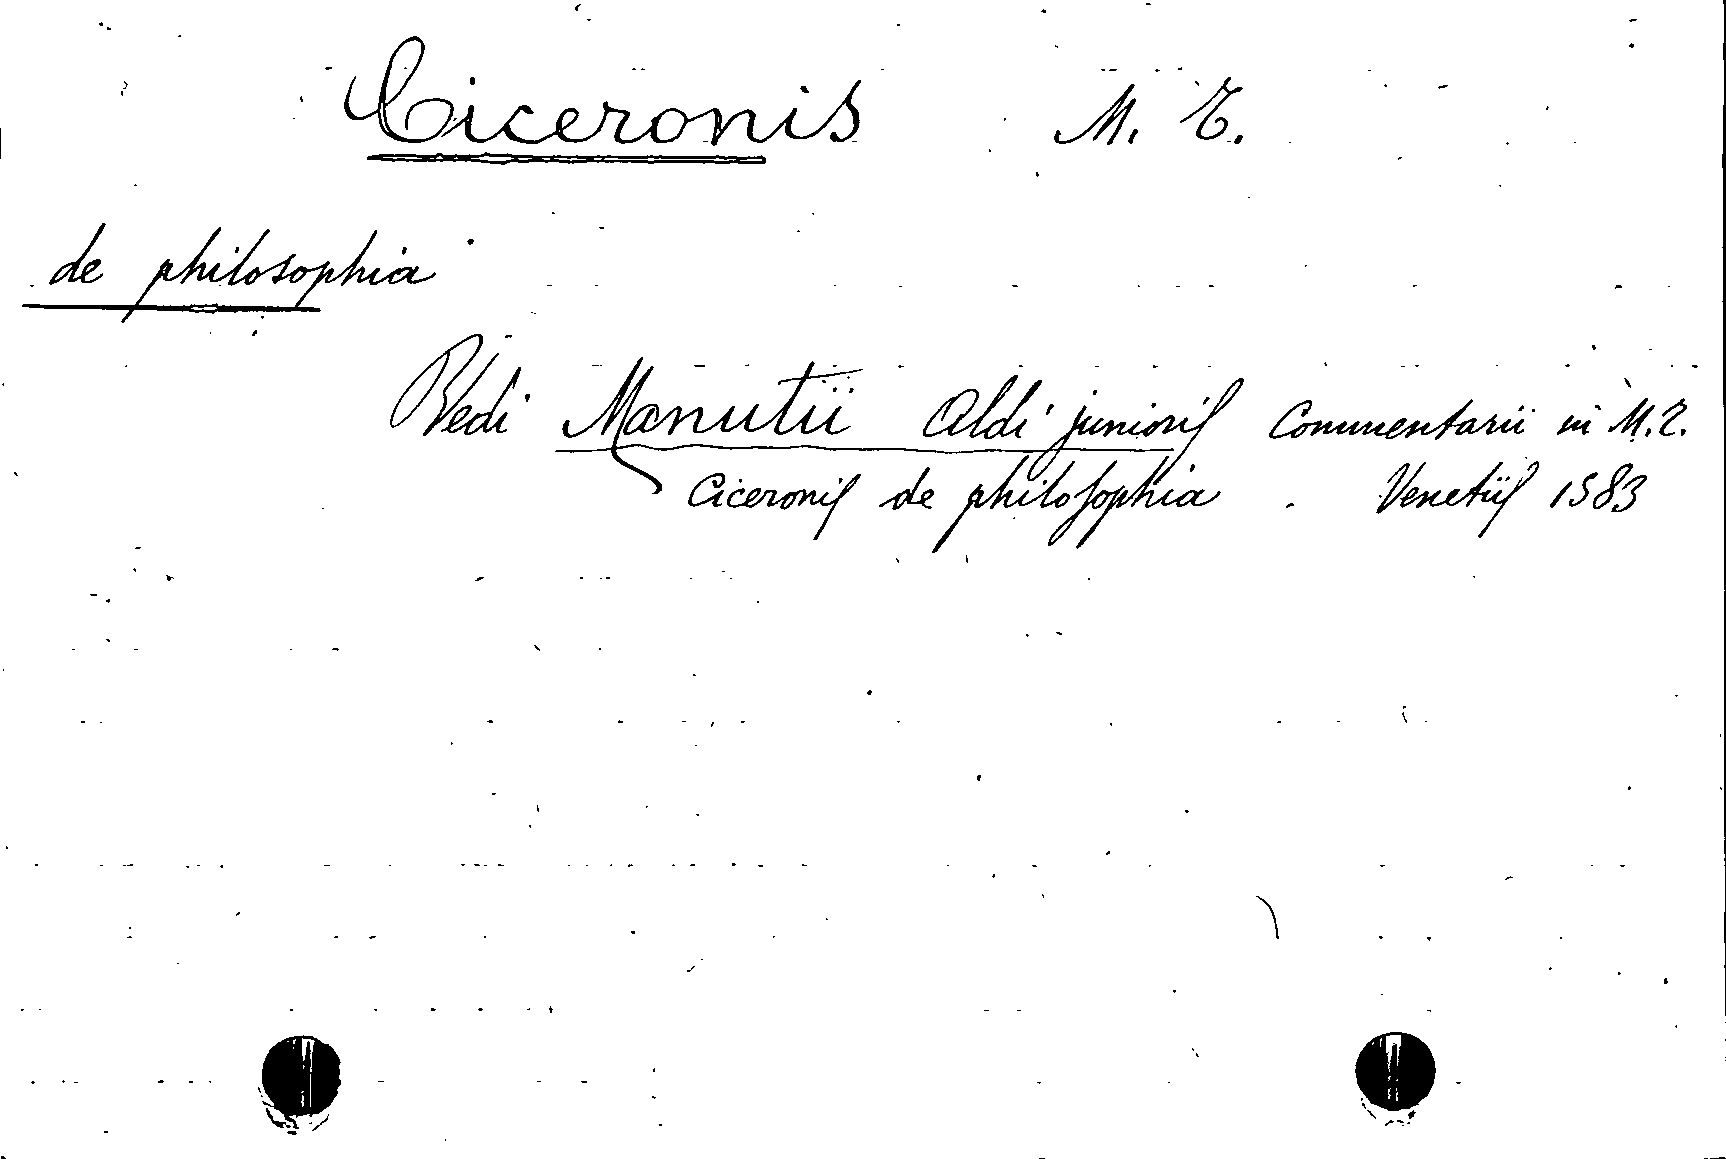 Ciceronis M. T.
de philosophia
Vedi Manutii Aldi junioris Commentarii in M. T.
Ciceronis de philosophia . Venetiis 1583